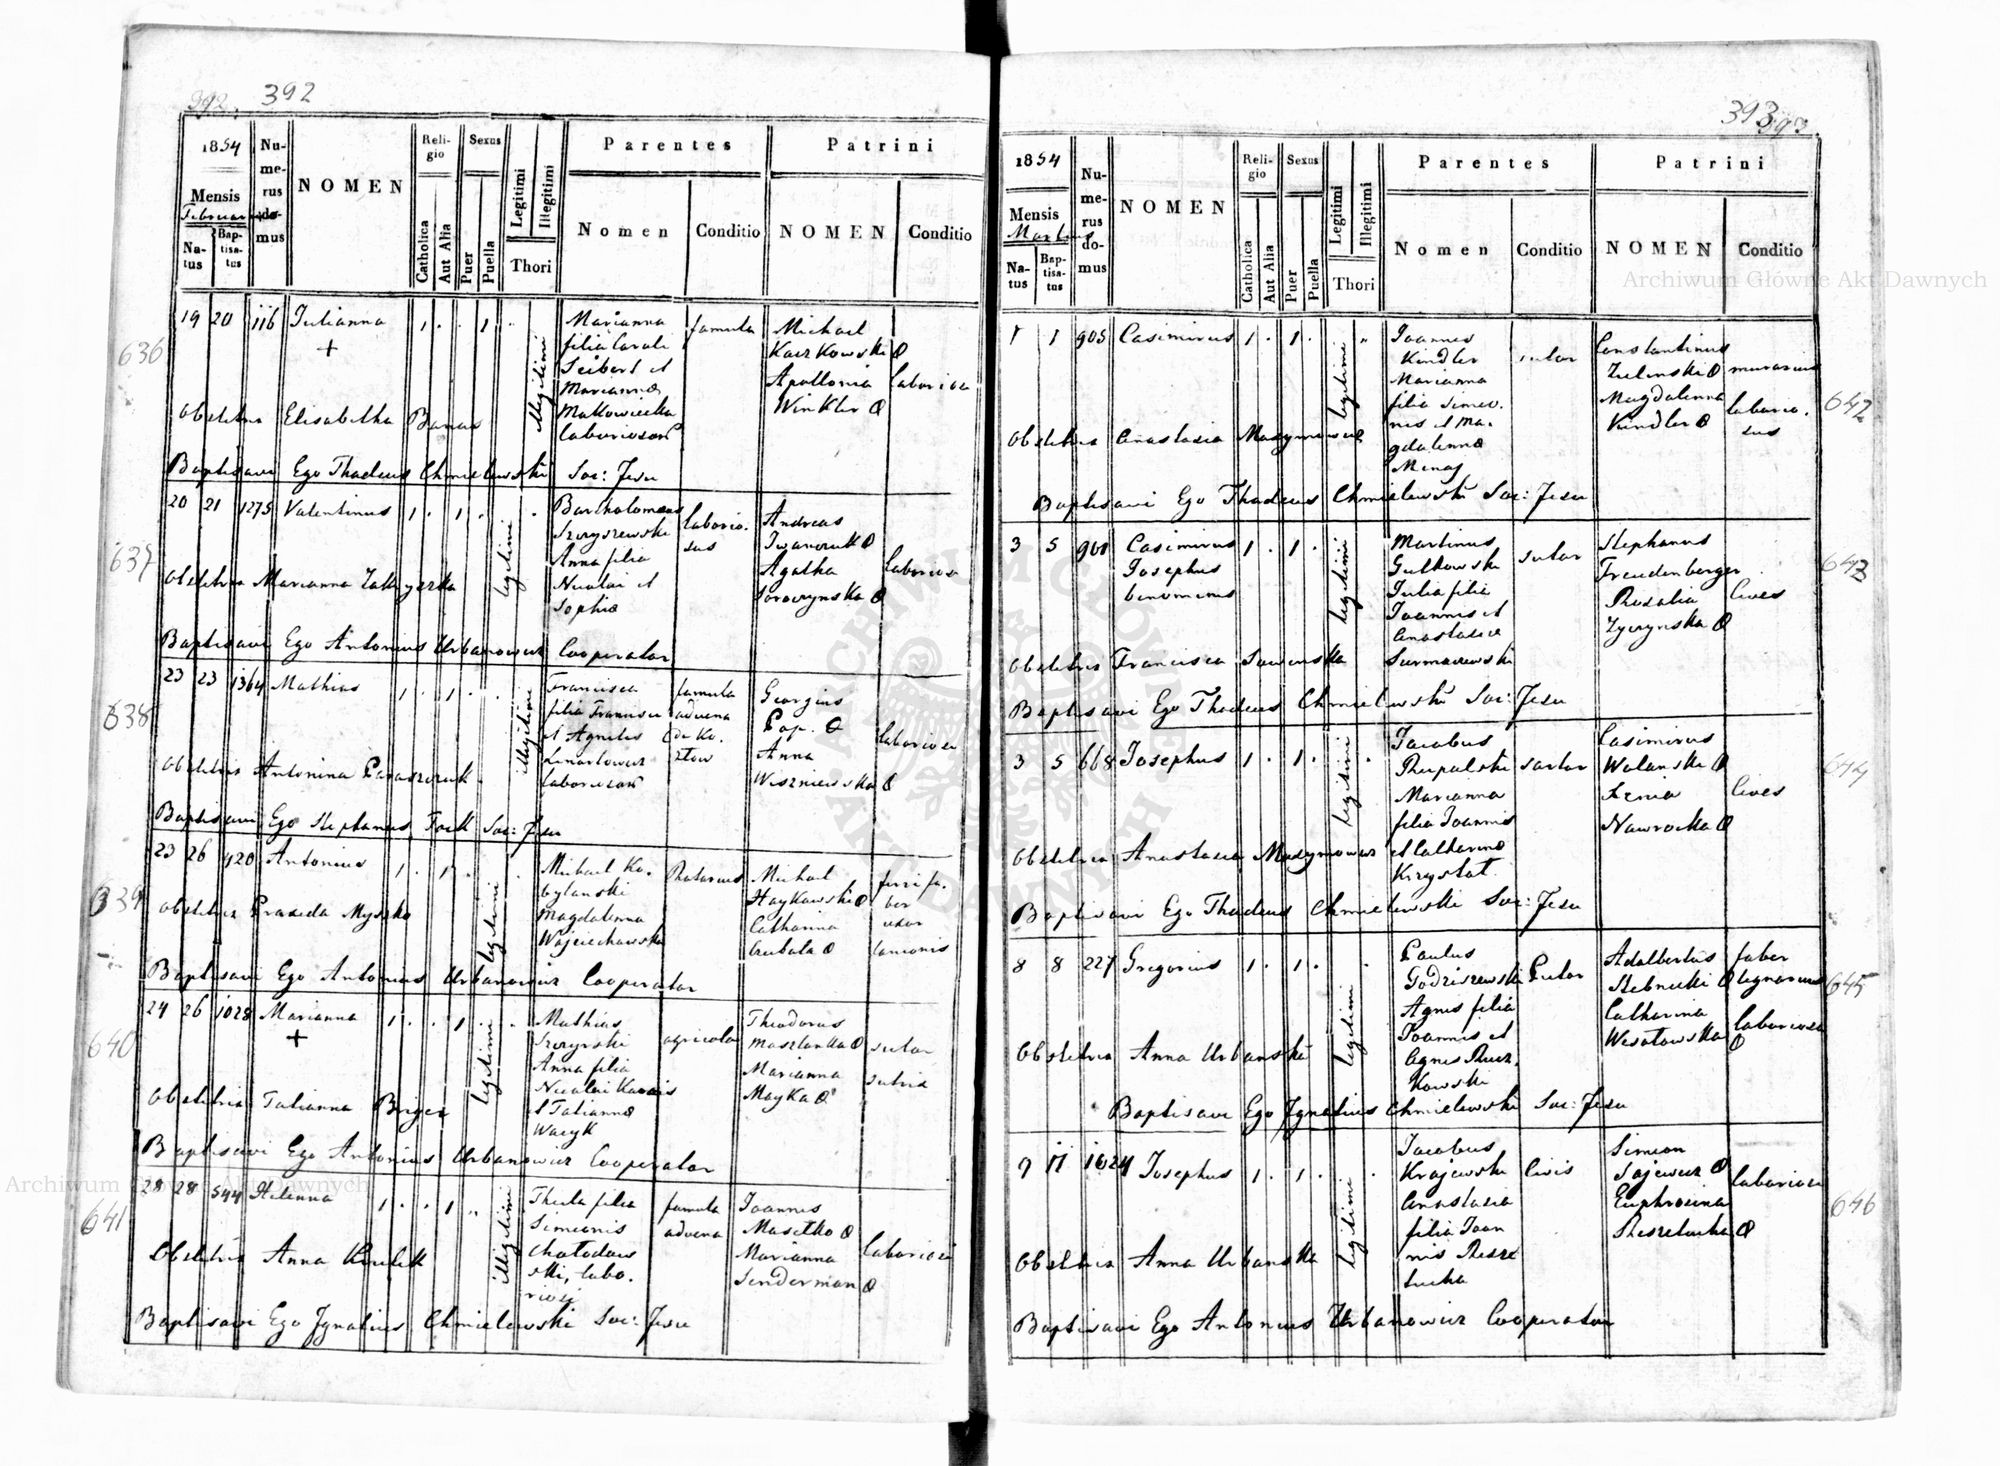 392. 392
1854
Mensis
Februarius
Natus
Baptisatus
Numerus domus
NOMEN
Religio
Catholica
Aut Alia
Sexus
Puer
Puella
Legitimi
Illegitimi
Thori
Parentes
Nomen
Conditio
Patrini
NOMEN
Conditio
636
19 20 116 Julianna 1 . . 1 .
+
illegitimi
Marianna
filia Caroli
Seibert et
Mariannæ
Makowiecka
laboriosor
famula
Michael
Kaczkowski
Apollonia
Winkler
laboriosi
Obstetrix Elisabetha Banas
Baptisavi Ego Thadeus Chmielewski Soc: Jesu
637
20 21 1275 Valentinus 1 . 1 . .
legitimi
Bartholomeus
Szeryszewski
Anna filia
Nicolai et
Sophiæ
laborio-
sus
Andreas
Iwanczuk
Agatha
Soroczynska
laboriosi
Obstetrix Marianna
Baptisavi Ego Antonius Urbanowicz Cooperator
638
23 23 1364 Mathias 1 . 1 . .
illegitimi
Francisca
filia Francisci
et Agnetis
Linartowicz
laboriosor
famula
advena
de Ko-
ztow
Georgius
Pap.
Anna
Wiszniewska
laboriosi
Obstetrix Antonina Paraszczuk
Baptisavi Ego Stephanus Fock Soc: Jesu
639
23 26 420 Antonius 1 . 1 . .
legitimi
Michael Ko-
bylanski
Magdalenna
Wojciechowska
Rotarius
Michael
Haykowski
Catharina
Cubata
ferri fa-
ber
uxor
lanionis
Obstetrix Praxeda Myszko
Baptisavi Ego Antonius Urbanowicz Cooperator
640
24 26 1028 Marianna 1 . . 1 .
+
legitimi
Mathias
Szczyrski
Anna filia
Nicolai
et Tatiannæ
Wacyk
agricola
Theodorus
Maszlanka
Marianna
Mayka
sutor
sutrix
Obstetrix Tatianna
Baptisavi Ego Antonius Urbanowicz Cooperator
641
28 28 544 Helenna 1 . . 1 "
illegitimi
Thecla filia
Simeonis
Chotodow
ski, labo-
riosi
famula
advena
Joannes
Masetko
Marianna
Senderman
laboriosi
Obstetrix Anna
Baptisavi Ego Ignatius Chmielewski Soc: Jesu
393 393.
1854
Mensis
Martius
Natus
Baptisatus
Numerus domus
NOMEN
Religio
Catholica
Aut Alia
Sexus
Puer
Puella
Legitimi
Illegitimi
Thori
Parentes
Nomen
Conditio
Patrini
NOMEN
Conditio
642
1 1 905 Casimirus 1 . 1 . "
legitimi
Joannes
Kindler
Marianna
filia Simeo-
nis et Ma-
gdalennæ
Minas
sutor
Constantinus
Zielinski
Magdalenna
Kindler
murarius
laborio-
sus
Obstetrix Anastasia
Baptisavi Ego Thadeus Chmielewski Soc: Jesu
643
3 5 901 Casimirus 1 . 1 .
Josephus
binominus
legitimi
Martinus
Gutkowski
Julia filia
Joannis et
Anastasiæ
Surmaczewski
sutor
Stephanus
Freudenberger
Rosalia
Zyczynska
Cives
Obstetrix Francisca
Baptisavi Ego Thadeus Chmielewski Soc: Jesu
644
3 5 668 Josephus 1 . 1 . .
legitimi
Jacobus
Rupalski
Marianna
filia Joannis
et Catharinæ
Krystat
sartor
Casimirus
Wolanski
Xenia
Nawrocka
Cives
Obstetrix Anastasia
Baptisavi Ego Thadeus Chmielewski Soc: Jesu
645
8 8 227 Gregorius 1 . 1 . .
legitimi
Paulus
Godziszewski
Agnes filia
Joannis et
Agnes Rucz-
kowski
sutor
Adalbertus
Stebnicki
Catharina
Wesołowska
faber
lignarius
laboriosa
Obstetrix Anna Urbanska
Baptisavi Ego Ignatius Chmielewski Soc: Jesu
646
9 11 1024 Josephus 1 . 1 . .
legitimi
Jacobus
Krajewski
Anastasia
filia Joan
nis Resze
tucha
Civis
Simeon
Sajewicz
Euphrosina
Reszetucha
laboriosi
Obstetrix Anna Urbanska
Baptisavi Ego Antonius Urbanowicz Cooperator
Archiwum Główne Akt Dawnych
Archiwum Główne Akt Dawnych
ARCHIWUM GŁÓWNE AKT DAWNYCH